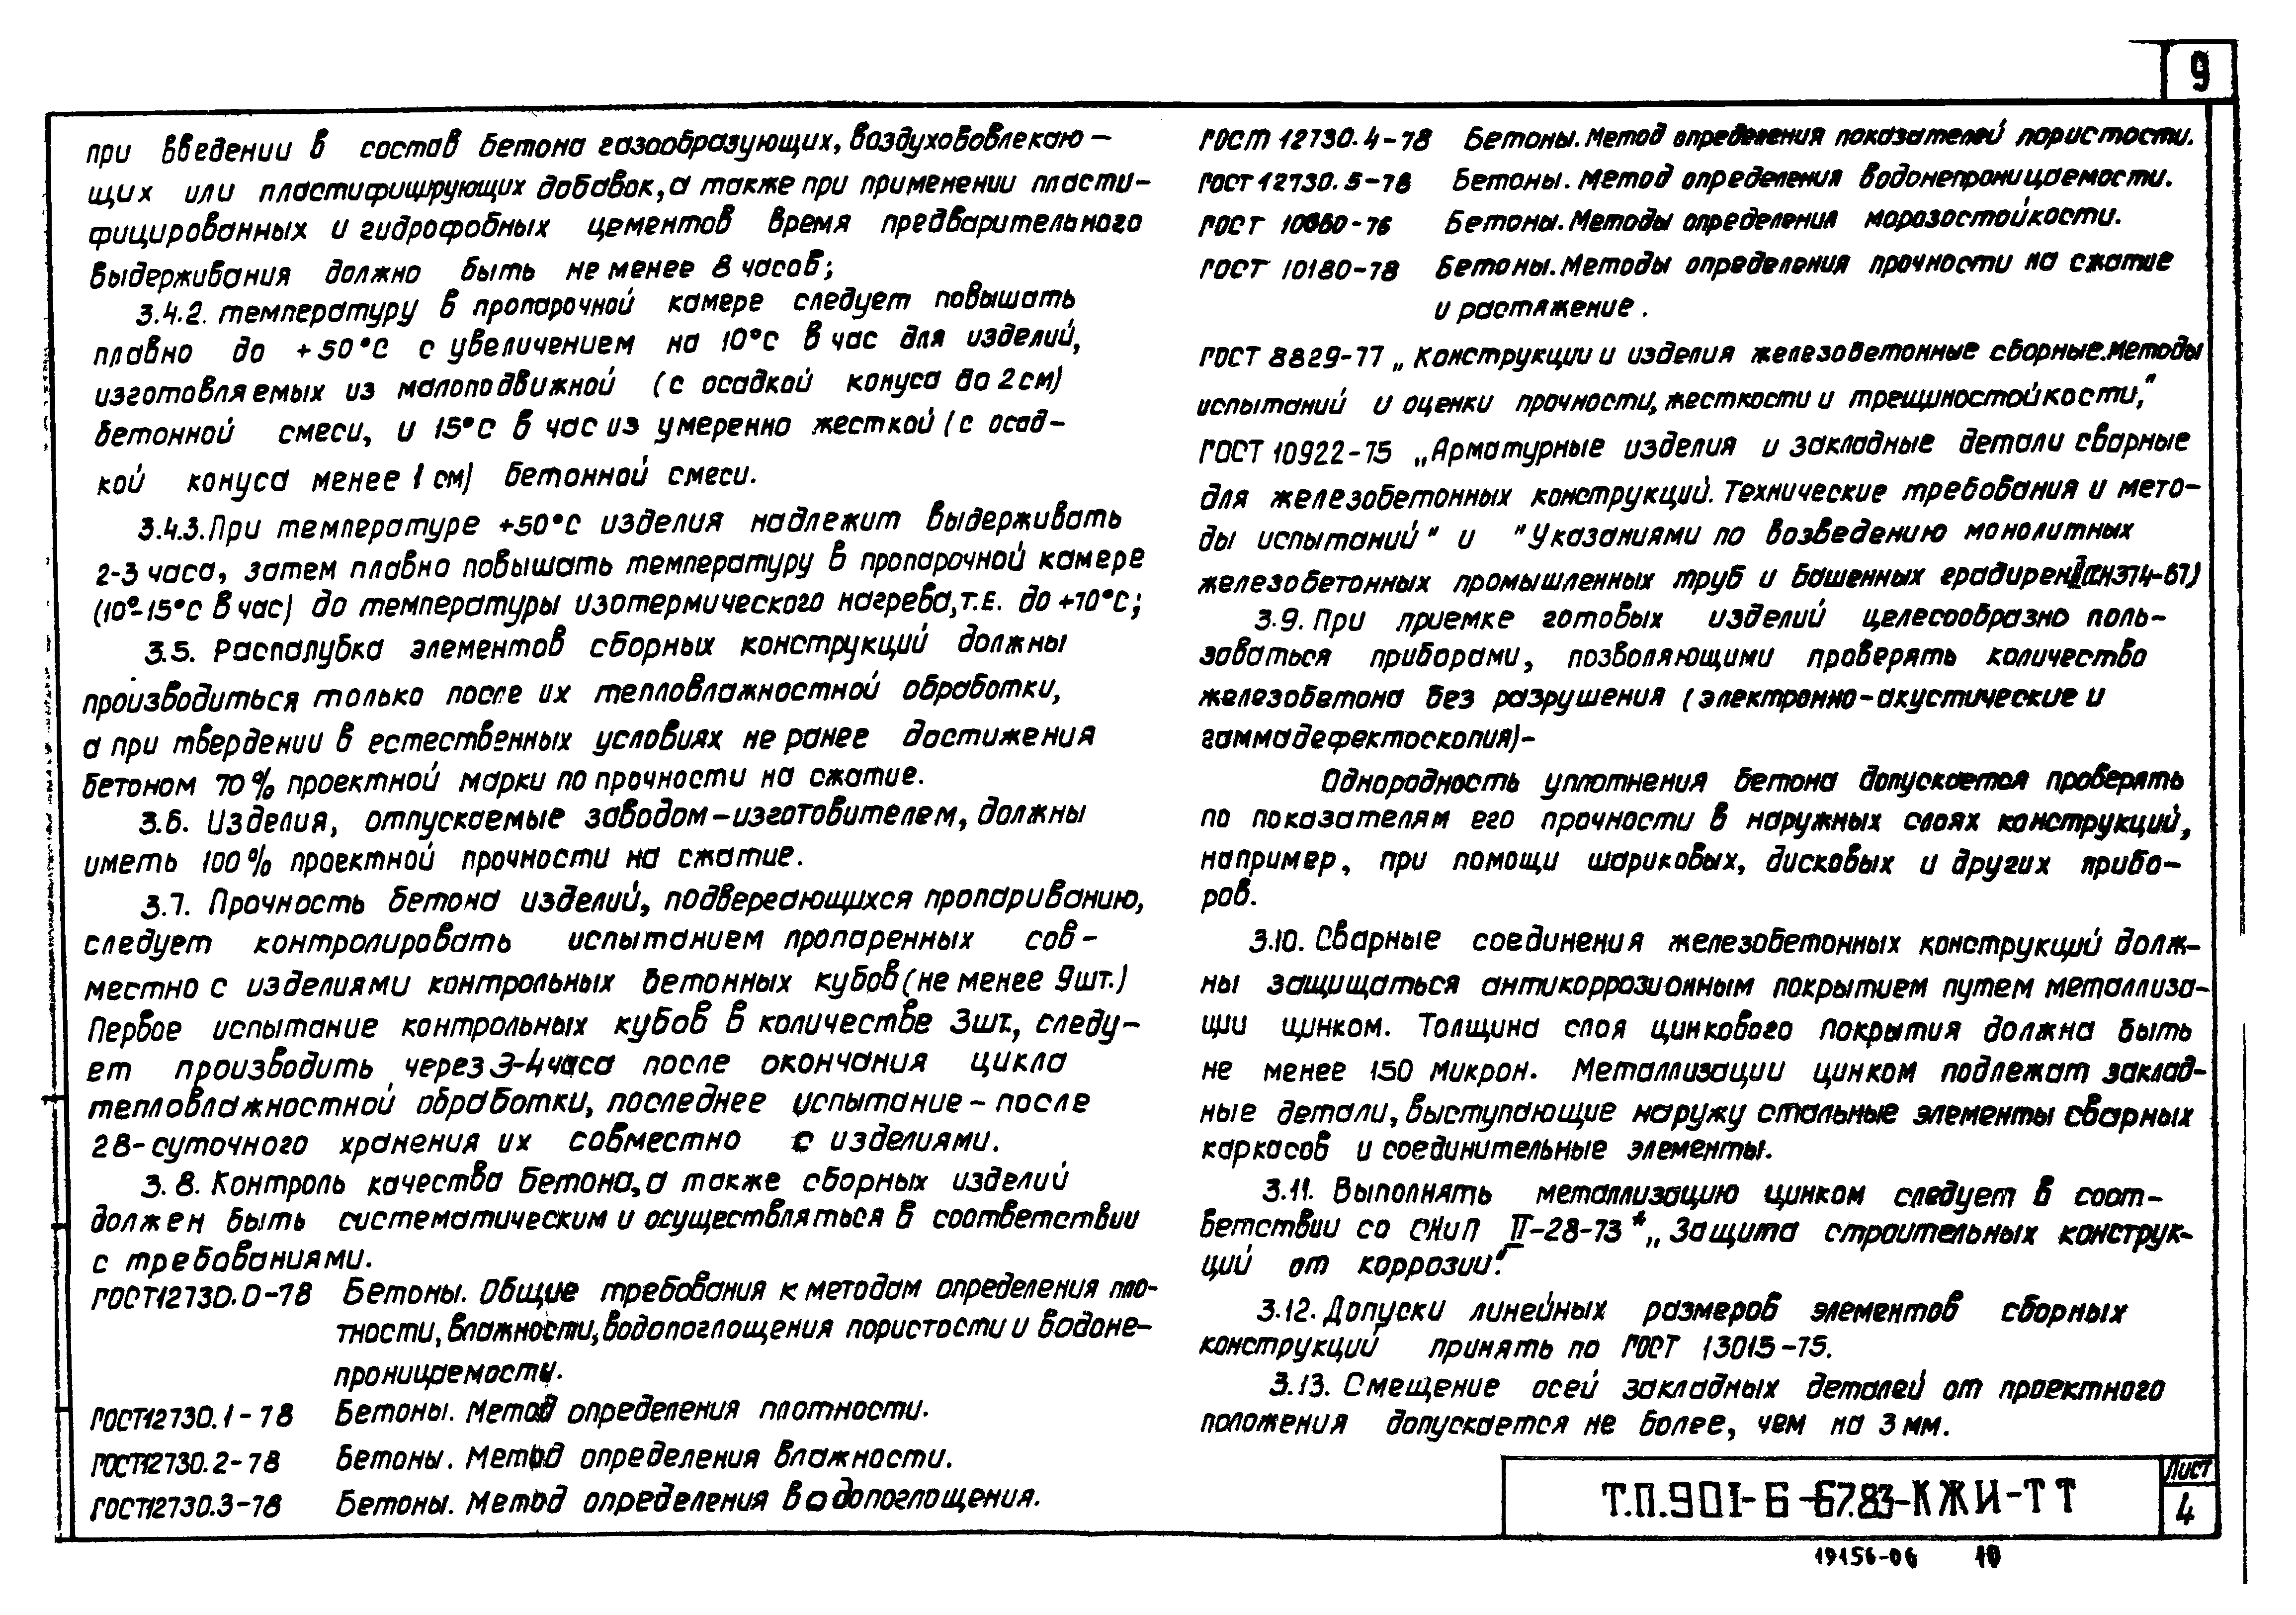 9
при введении в состав бетона газообразующих, воздухововлекаю-
щих или пластифицирующих добавок, а также при применении пласти-
фицированных и гидрофобных цементов время предварительного
выдерживания должно быть не менее 8 часов;
3.4.2. температуру в пропарочной камере следует повышать
плавно до +50°С с увеличением на 10°С в час для изделий,
изготовляемых из малоподвижной (с осадкой конуса до 2см)
бетонной смеси, и 15°С в час из умеренно жесткой (с осад-
кой конуса менее 1 см) бетонной смеси.
3.4.3. При температуре +50°С изделия надлежит выдерживать
2-3 часа, затем плавно повышать температуру в пропарочной камере
(10°-15°С в час) до температуры изотермического нагрева, т.е. до +70°С;
3.5. Распалубка элементов сборных конструкций должны
производиться только после их тепловлажностной обработки,
а при твердении в естественных условиях не ранее достижения
бетоном 70% проектной марки по прочности на сжатие.
3.6. Изделия, отпускаемые заводом-изготовителем, должны
иметь 100% проектной прочности на сжатие.
3.7. Прочность бетона изделий, подвергающихся пропариванию,
следует контролировать испытанием пропаренных сов-
местно с изделиями контрольных бетонных кубов (не менее 9шт.)
Первое испытание контрольных кубов в количестве 3шт., следу-
ет производить через 3-4 часа после окончания цикла
тепловлажностной обработки, последнее испытание - после
28-суточного хранения их совместно с изделиями.
3.8. Контроль качества бетона, а также сборных изделий
должен быть систематическим и осуществляться в соответствии
с требованиями.
ГОСТ12730.0-78 Бетоны. Общие требования к методам определения пло-
тности, влажности, водопоглощения пористости и водоне-
проницаемости.
ГОСТ12730.1-78 Бетоны. Метод определения плотности.
ГОСТ12730.2-78 Бетоны. Метод определения влажности.
ГОСТ12730.3-78 Бетоны. Метод определения водопоглощения.
ГОСТ 12730.4-78 Бетоны. Метод определения показателей пористости.
ГОСТ 12730.5-78 Бетоны. Метод определения водонепроницаемости.
ГОСТ 10060-76 Бетоны. Методы определения морозостойкости.
ГОСТ 10180-78 Бетоны. Методы определения прочности на сжатие
и растяжение.
ГОСТ 8829-77 „Конструкции и изделия железобетонные сборные. Методы
испытаний и оценки прочности, жесткости и трещиностойкости",
ГОСТ 10922-75 „Арматурные изделия и закладные детали сварные
для железобетонных конструкций. Технические требования и мето-
ды испытаний" и "Указаниями по возведению монолитных
железобетонных промышленных труб и башенных градирен" (СН374-67)
3.9. При приемке готовых изделий целесообразно поль-
зоваться приборами, позволяющими проверять количество
железобетона без разрушения (электронно-акустические и
гаммадефектоскопия)-
Однородность уплотнения бетона допускается проверять
по показателям его прочности в наружных слоях конструкций,
например, при помощи шариковых, дисковых и других прибо-
ров.
3.10. Сварные соединения железобетонных конструкций долж-
ны защищаться антикоррозионным покрытием путем металлиза-
ции цинком. Толщина слоя цинкового покрытия должна быть
не менее 150 микрон. Металлизации цинком подлежат заклад-
ные детали, выступающие наружу стальные элементы сварных
каркасов и соединительные элементы.
3.11. Выполнять металлизацию цинком следует в соот-
ветствии со СНиП II-28-73* „Защита строительных конструк-
ций от коррозии".
3.12. Допуски линейных размеров элементов сборных
конструкций принять по ГОСТ 13015-75.
3.13. Смещение осей закладных деталей от проектного
положения допускается не более, чем на 3 мм.
Т.П.901-6-67.83-КЖИ-ТТ
Лист
4
19156-06 10